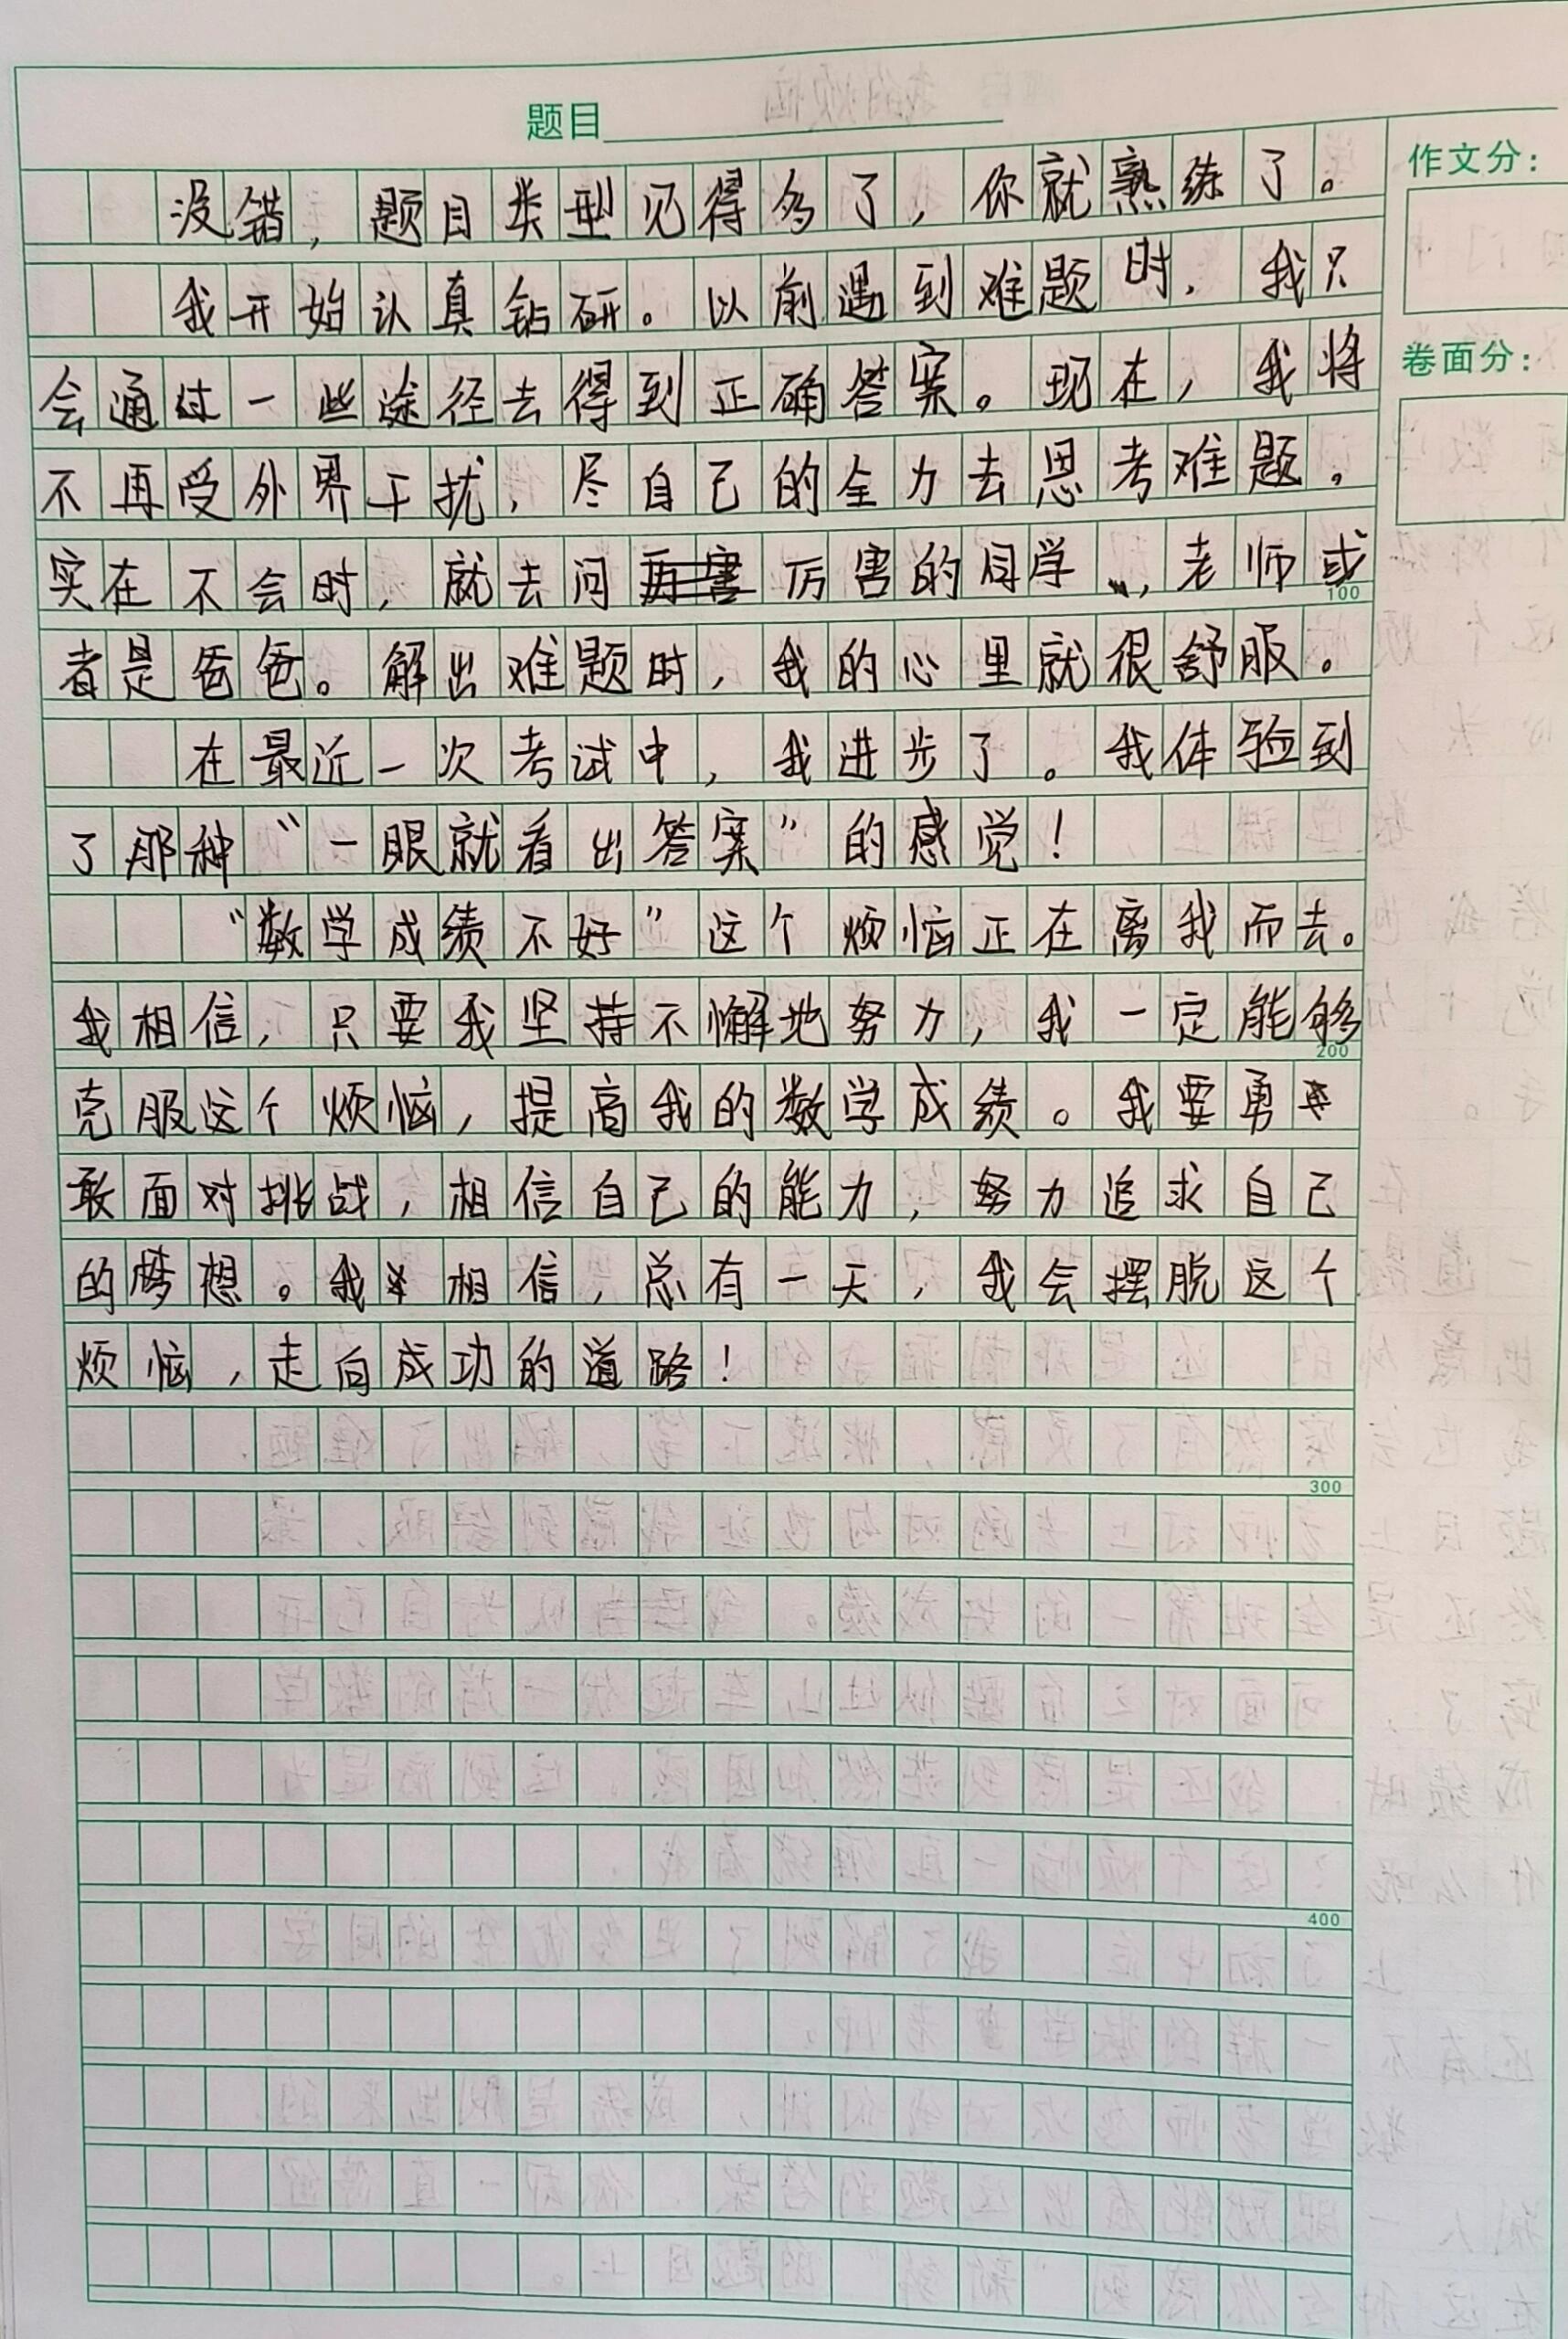 题目
作文分：
没错，题目类型见得多了，你就熟练了。
我开始认真钻研。以前遇到难题时，我只
卷面分：
会通过一些途径去得到正确答案。现在，我将
不再受外界干扰，尽自己的全力去思考难题。
实在不会时，就去问厉害的同学、老师或
100
者是爸爸。解出难题时，我的心里就很舒服。
在最近一次考试中，我进步了。我体验到
了那种“一眼就看出答案”的感觉！
“数学成绩不好”这个烦恼正在离我而去。
我相信，只要我坚持不懈地努力，我一定能够
200
克服这个烦恼，提高我的数学成绩。我要勇
敢面对挑战，相信自己的能力，努力追求自己
的梦想。我相信，总有一天，我会摆脱这个
烦恼，走向成功的道路！
300
400